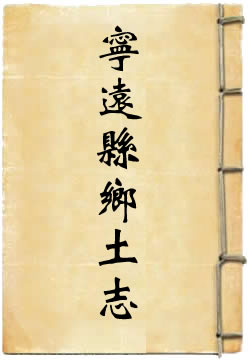 寧遠縣鄉土志